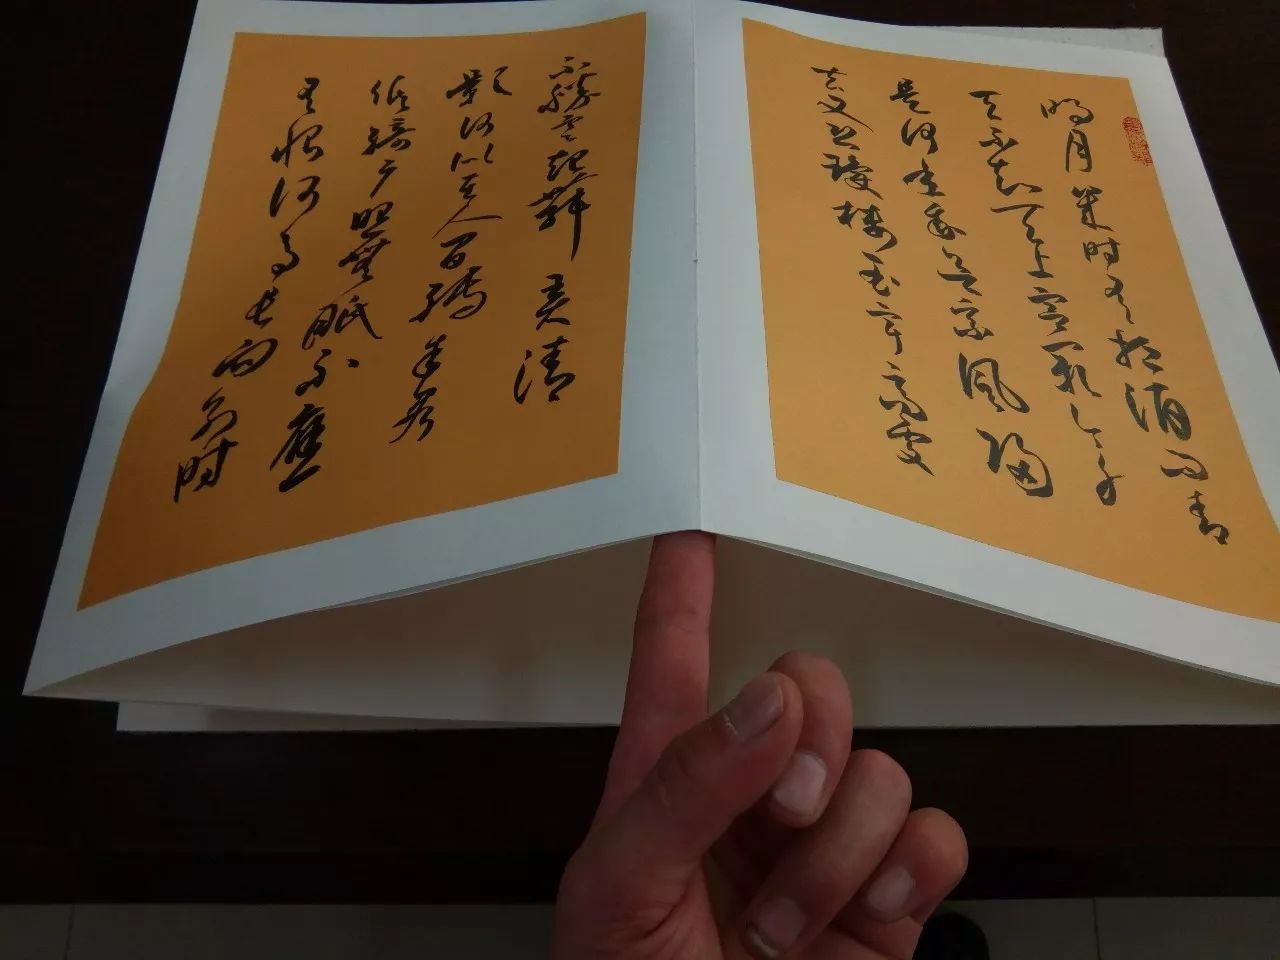 明月幾时有把酒问青
天不知天上宫闕今夕
是何年我欲乘風归
去又恐瓊楼玉宇高處
不勝寒起舞弄清
影何似在人間轉朱阁
低綺户照無眠不應
有恨何事長向别时